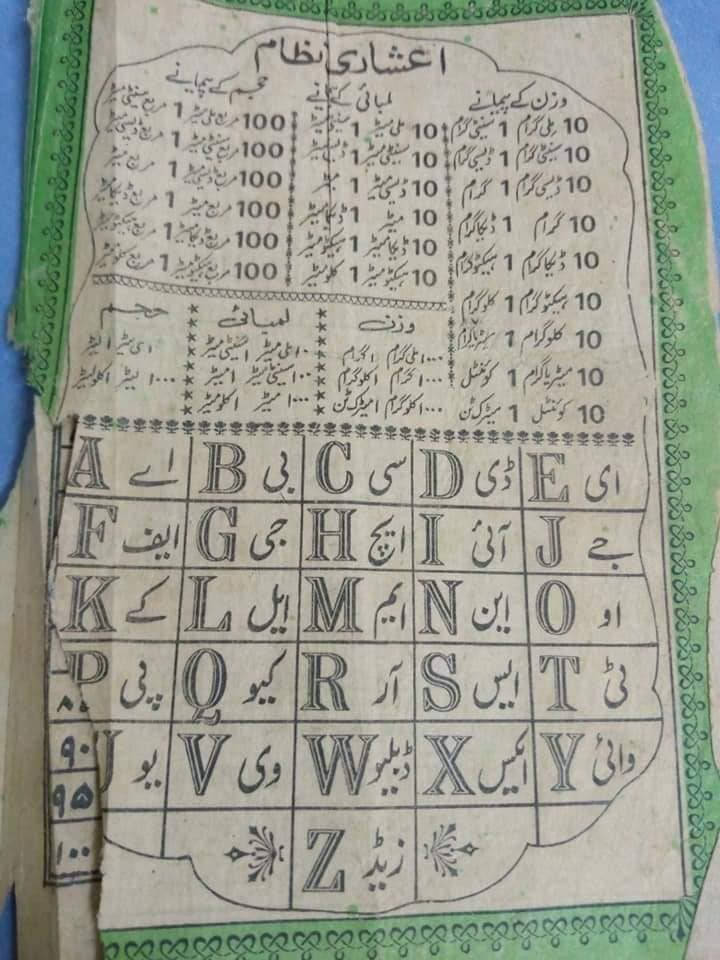 اعشاری نظام
وزن کے پیمانے
10 ملی گرام 1 سینٹی گرام
10 سینٹی گرام 1 ڈیسی گرام
10 ڈیسی گرام 1 گرام
10 گرام 1 ڈیکا گرام
10 ڈیکا گرام 1 ہیکٹو گرام
10 ہیکٹو گرام 1 کلو گرام
10 کلو گرام 1 میٹریا گرام
10 میٹریا گرام 1 کوئنٹل
10 کوئنٹل 1 میٹرک ٹن
لمبائی کے پیمانے
10 ملی میٹر 1 سینٹی میٹر
10 سینٹی میٹر 1 ڈیسی میٹر
10 ڈیسی میٹر 1 میٹر
10 میٹر 1 ڈیکا میٹر
10 ڈیکا میٹر 1 ہیکٹو میٹر
10 ہیکٹو میٹر 1 کلو میٹر
حجم کے پیمانے
100 مربع ملی میٹر 1 مربع سینٹی میٹر
100 مربع سینٹی میٹر 1 مربع ڈیسی میٹر
100 مربع ڈیسی میٹر 1 مربع میٹر
100 مربع میٹر 1 مربع ڈیکا میٹر
100 مربع ڈیکا میٹر 1 مربع ہیکٹو میٹر
100 مربع ہیکٹو میٹر 1 مربع کلو میٹر
وزن
۱۰۰۰ ملی گرام ۱ گرام
۱۰۰۰ گرام ۱ کلو گرام
۱۰۰۰ کلو گرام ۱ میٹرک ٹن
لمبائی
۱۰ ملی میٹر ۱ سینٹی میٹر
۱۰۰ سینٹی میٹر ۱ میٹر
۱۰۰۰ میٹر ۱ کلو میٹر
حجم
۱ لیٹر
۱۰۰۰ لیٹر ۱ کلو لیٹر
A اے B بی C سی D ڈی E ای
F ایف G جی H ایچ I آئی J جے
K کے L ایل M ایم N این O او
P پی Q کیو R آر S ایس T ٹی
U یو V وی W ڈبلیو X ایکس Y وائی
Z زیڈ
۹۰
۹۵
۱۰۰